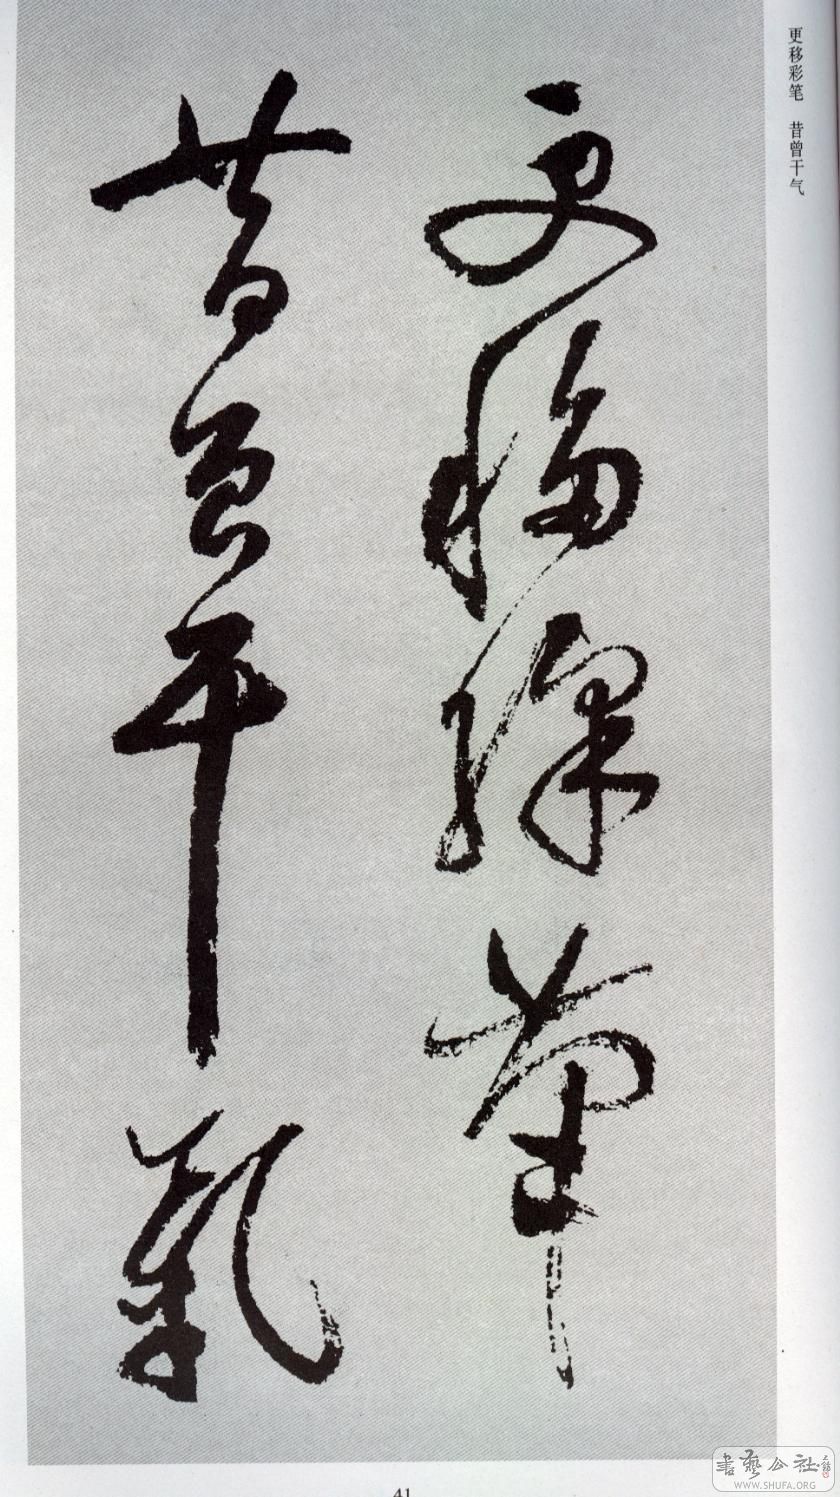 更移彩笔　昔曾干气
更移綵筆
昔曾干氣
41
書藝公社
WWW.SHUFA.ORG